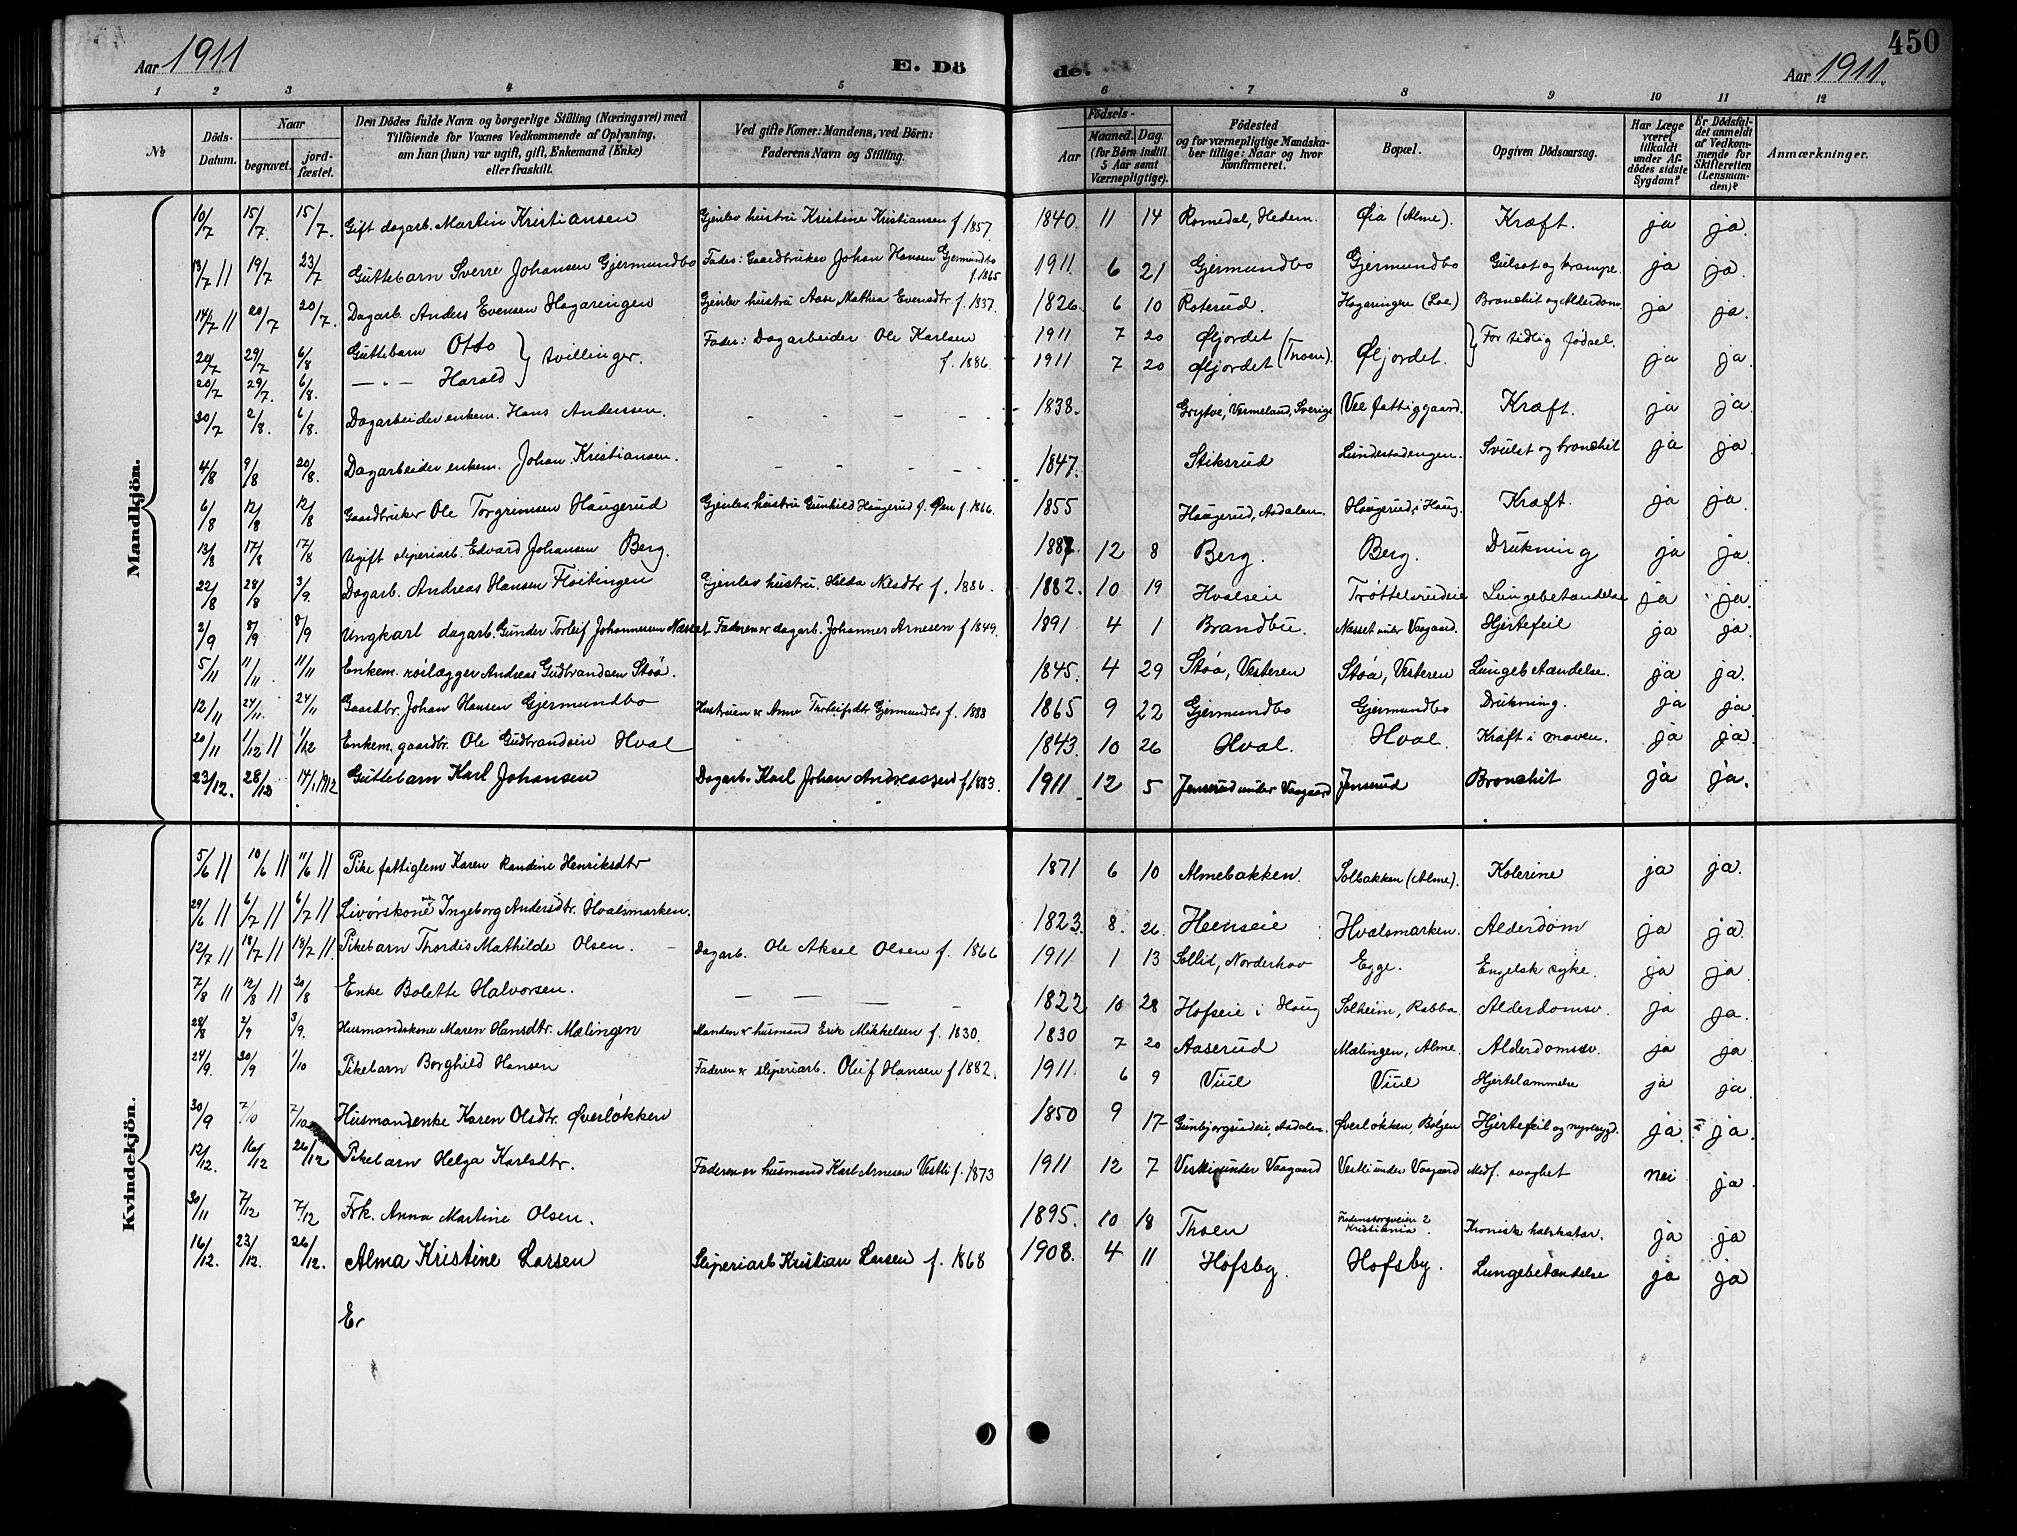 Aar 1911
E. Dö
de.
Aar 1911.
450
1 2 3 4 5 6 7 8 9 10 11 12
№
Döds-Datum.
Naar
begravet.
jord-fæstet.
Den Dödes fulde Navn og borgerlige Stilling (Næringsvei) med
Tilföiende for Voxnes Vedkommende af Oplysning,
om han (hun) var ugift, gift, Enkemand (Enke)
eller fraskilt.
Ved gifte Koner: Mandens, ved Börn:
Faderens Navn og Stilling.
Födsels-
Aar
Maaned. Dag.
(for Börn indtil
5 Aar samt
Værnepligtige).
Födested
og for værnepligtige Mandska-
ber tillige: Naar og hvor
konfirmeret.
Bopæl.
Opgiven Dödsaarsag.
Har Læge
været
tilkaldt
under Af-
dödes sidste
Sygdom?
Er Dödsfal-
det anmeldt
af Vedkom-
mende for
Skifteretten
(Lensman-
den)?
Anmærkninger.
Mandkjön.
10/7 15/7. 15/7. Gift dagarb. Martin Kristiansen Gjenlev hustru Kristine Kristiansen f. 1857. 1840. 11 14 Romedal, Hedem. Øia (Alme). Kræft. ja ja.
13/7 11 19/7 23/7 Guttebarn Sverre Johansen Gjermundbo Fader: Gaardbruker Johan Hansen Gjermundbo f. 1865 1911. 6 21 Gjermundbo Gjermundbo Gulsot og krampe. ja ja.
14/7 11 20/7 20/7. Dagarb. Anders Evensen Hagaringen Gjenlev hustru Aase Mathea Evensdtr f. 1837. 1826. 6 10 Roterud. Hagaringen (Loe) Bronchit og Alderdom. ja ja.
20/7 29/7 6/8 Guttebarn Otto } tvillinger. Fader: Dagarbeider Ole Karlsen f. 1886. 1911 7 20 Øljordet (Thoen). Øljordet. } For tidlig fødsel. ja ja.
20/7 29/7. 6/8. —„— Harald 1911 7 20 Øljordet
30/7 2/8. 6/8. Dagarbeider enkem. Hans Anderssen. - - - - 1838. Grytve, Vermeland, Sverige (Vee fattiggaard. Kræft. ja ja
4/8 9/8 20/8. Dagarbeider enkem. Johan Kristiansen. - - - - 1847. Stiksrud Lundestadengen. Svulst og bronchit ja ja.
6/8 12/8 12/8 Gaardbruker Ole Torgrimsen Haugerud Gjenlev. hustru Gunhild Haugerud f. Øen f. 1866. 1855 Haugerud, Aadalen. Haugerud, i Haug. Kræft. ja ja.
13/8 17/8 17/8 Ugift sliperiarb. Edvard Johansen Berg. 1887 12 8 Berg. Berg. Drukning ja ja.
22/8 28/8 3/9. Dagarb. Andreas Hansen Fløitingen Gjenlev hustru. Hilda Nilsdtr f. 1886. 1882. 10 19 Hvalsen Trøttelsrudeie Lungebetændelse ja ja.
2/9 8/9 8/9 Ungkarl dagarb. Gunder Torleif Johannessen Næsset Faderen er dagarb. Johannes Arnesen f 1849. 1891. 4 1 Brandbu. Næsset under Vaagaard. Hjertefeil ja ja.
5/11 11/11 11/11 Enkem. Andreas Gudbrandsen Støa. 1845. 4 29 Støa, Vesteren Støa, Vesteren Lungebetændelse. ja ja.
12/11 24/11. 24/11 Gaardbr. Johan Hansen Gjermundbo Hustruen er Anne Thorleifsdtr Gjermundbo f. 1888 1865 9 22 Gjermundbo Gjermundbo Drukning. ja ja.
20/11 1/12 11 1/12 Enkem. gaardbr. Ole Gudbrandsen Hval 1843. 10 26 Hval. Hval. Kræft i maven. ja ja
23/12. 28/12 14/1 1912 Guttebarn Karl Johansen Dagarb. Karl Johan Andreassen f. 1883. 1911 12 5 Jenserud under Vaagaard Jenserud Bronchit ja ja.
Kvindekjön.
5/6 11 10/6 11 11/6 11 Pike fattiglem Karen Randine Henriksdtr 1871 6 10 Almebakken. Solbakken (Alme). Kolerine ja ja.
29/6 11 6/7 11 6/7 11 Livørskone Ingeborg Andersdtr. Hvalsmarken. 1823. 8. 26. Heenseie Hvalsmarken. Alderdom ja ja.
12/7 11 18/7 11 18/7 11. Pikebarn Thordis Mathilde Olsen. - Dagarb. Ole Aksel Olsen f. 1866 1911 1 13 Sollid, Norderhov Egge. Engelsk syke. ja ja.
7/8 11 12/8 11 20/8 Enke Bolette Halvorsen. — — — - 1822 10 28 Hofseie i Haug Solheim, Rabba Alderdomsv. ja ja.
28/8 2/9 3/9. Husmandskone Maren Hansdtr. Mælingen Manden er husmand Erik Mikkelsen f. 1830. 1830 7 20 Aaserud Mælingen, Alme. Alderdomssv. ja ja
24/9. 30/9 1/10 Pikebarn Borghild Hansen Faderen er sliperiarb. Oluf Hansen f 1882. 1911. 6 9 Viul Viul Hjertelammelse ja ja
30/9 7/10 7/10 Husmandsenke Karen Olsdtr. Øverløkken 1850 9 17 Gunbjørgsrudeie, Aadalen. Øverløkken, Bølgen Hjertefeil og nyresygd. ja. ja.
12/12. 16/12 26/12 Pikebarn Helga Karlsdtr. Faderen er husmand Karl Arnesen Vestli f. 1873 1911 12 7 Vestli under Vaagaard Vestli under Vaagaard Medf. svaghet nei ja.
30/11 7/12 7/12 Frk. Anna Martine Olsen. 1895. 10 18 Thoen Fredensborgveien 2 Kristiania. Kronisk halskatar. ja ja
16/12. 23/12. 26/12. Alma Kristine Larsen Sliperiarb Kristian Larsen f. 1868 1908. 4 11 Hofsby. Hofsby. Lungebetændelse ja ja
Er